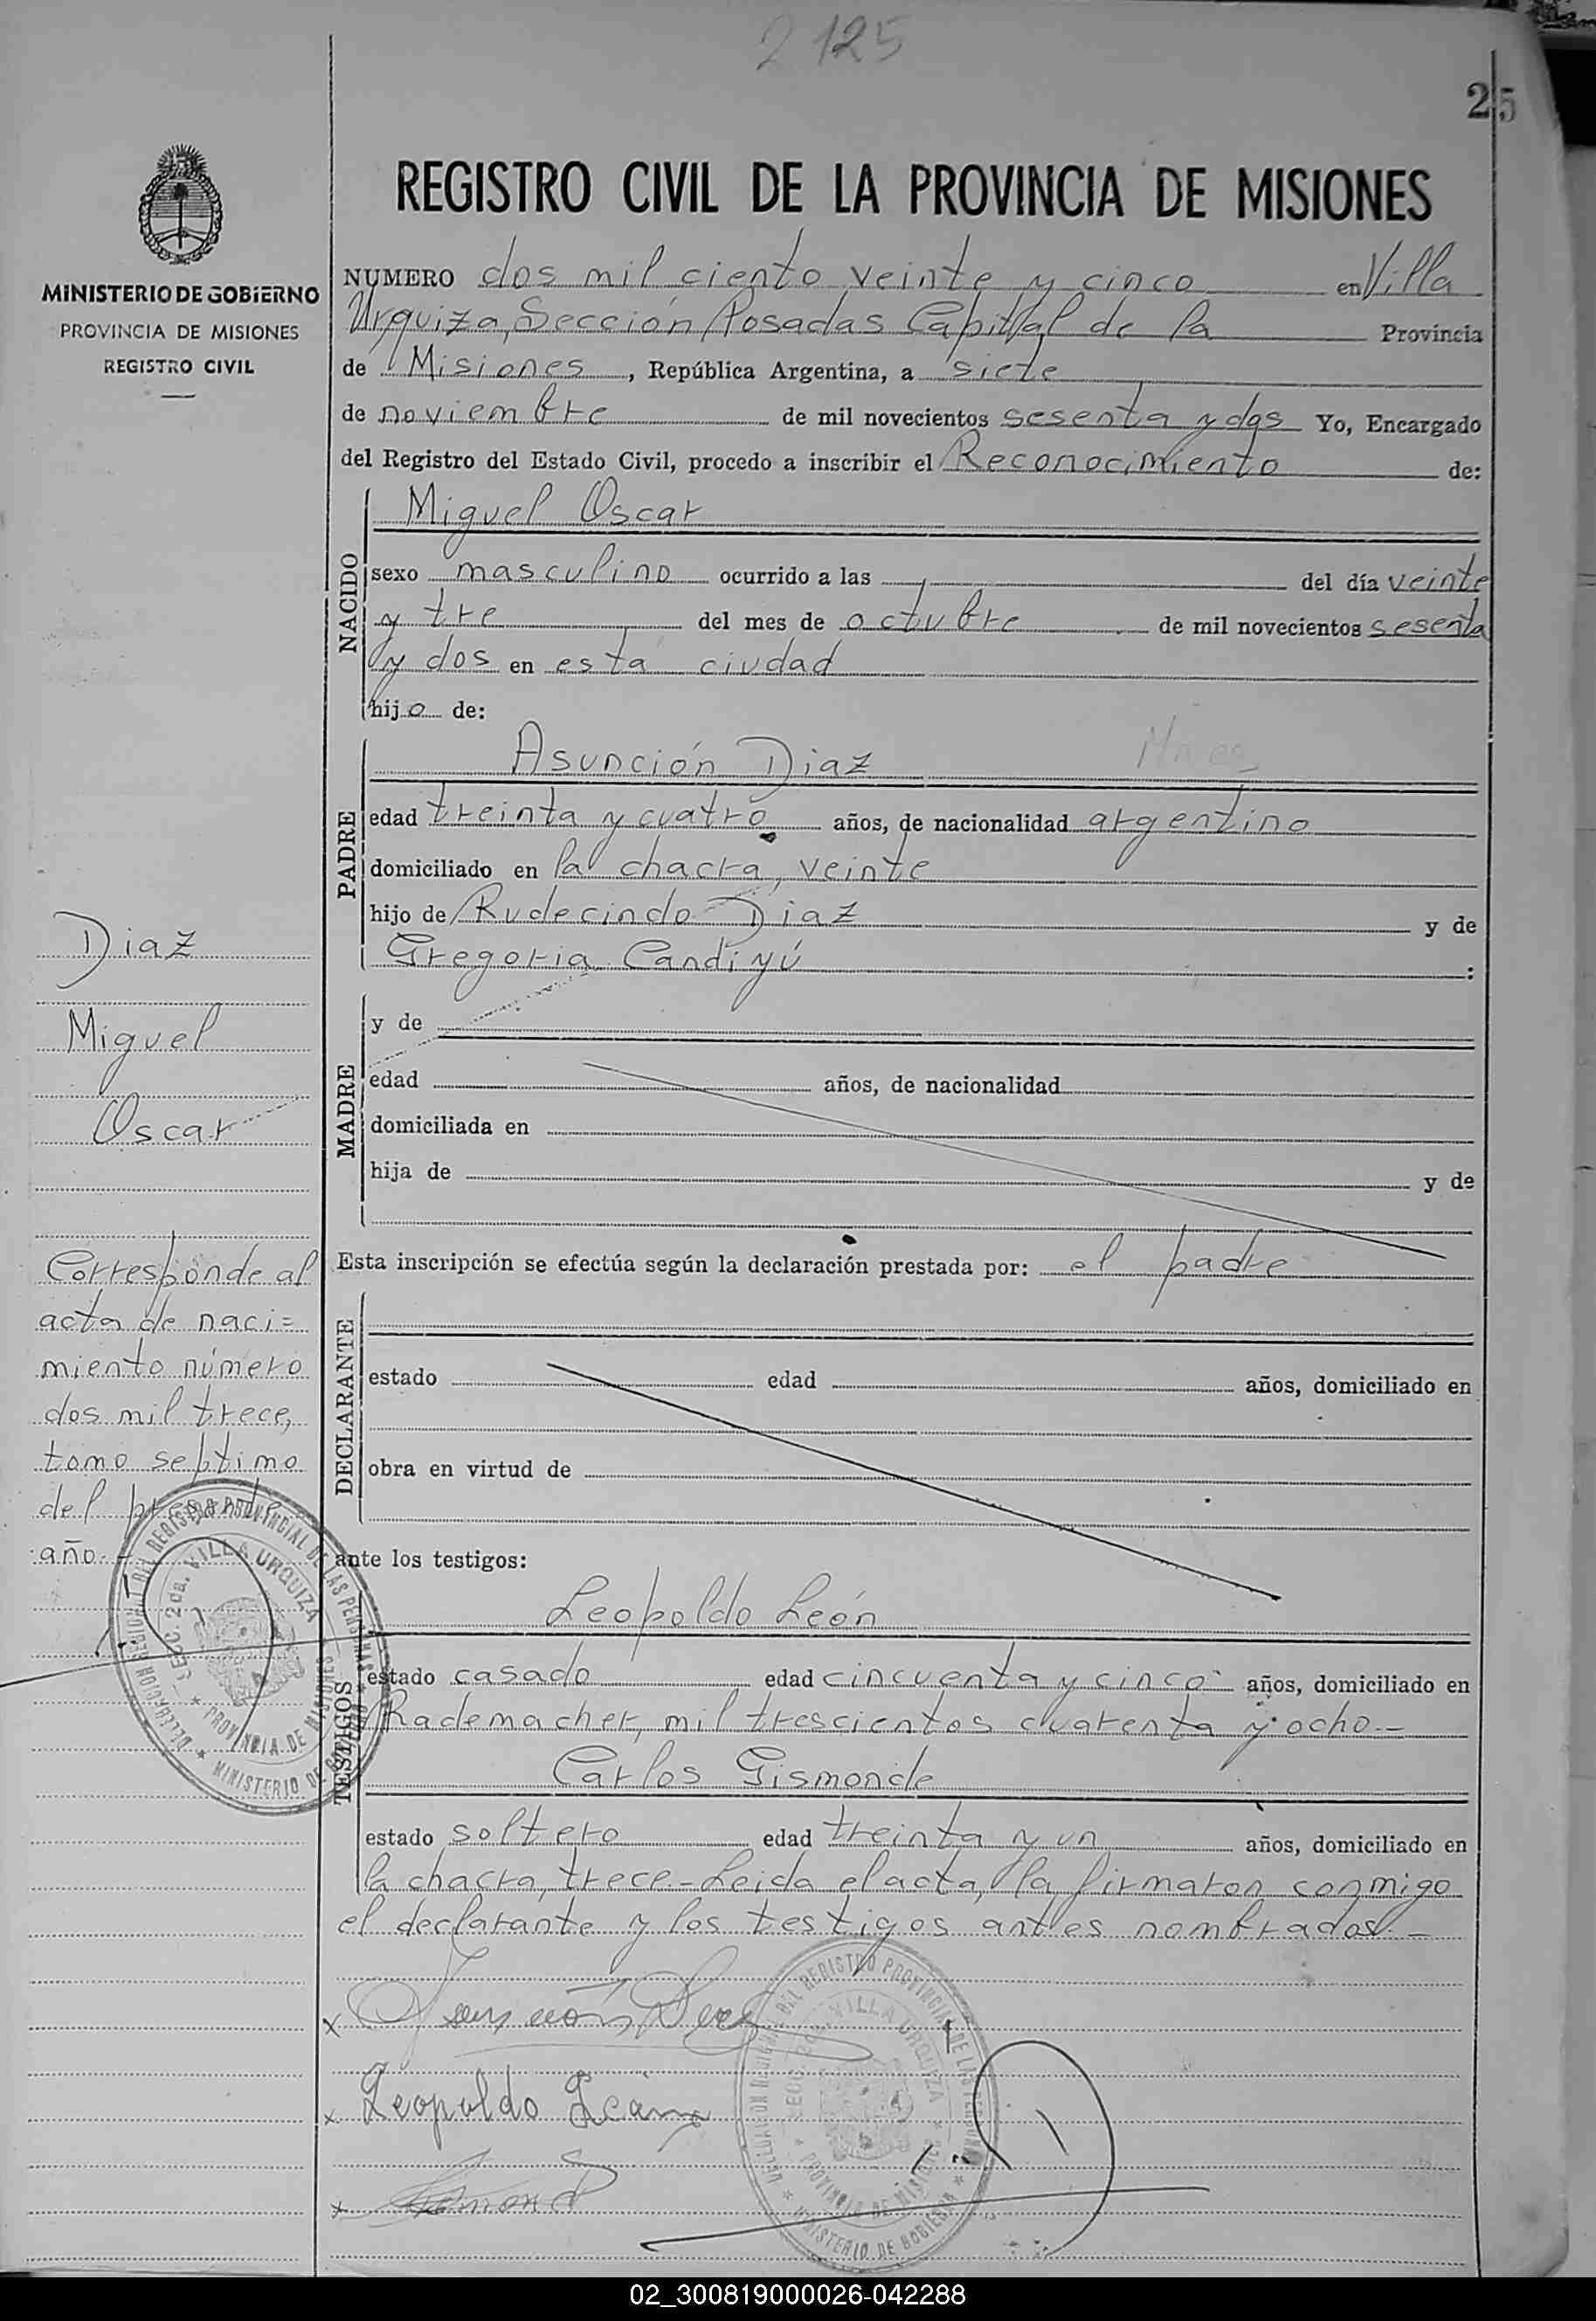 2125
25
MINISTERIO DE GOBIERNO
PROVINCIA DE MISIONES
REGISTRO CIVIL
REGISTRO CIVIL DE LA PROVINCIA DE MISIONES
NUMERO dos mil ciento veinte y cinco en Villa
Urquiza, Sección Posadas Capital de la Provincia
de Misiones, República Argentina, a siete
de noviembre de mil novecientos sesenta y dos Yo, Encargado
del Registro del Estado Civil, procedo a inscribir el Reconocimiento de:
NACIDO
Miguel Oscar
sexo masculino ocurrido a las del día veinte
y tre del mes de octubre de mil novecientos sesenta
y dos en esta ciudad
hijo de:
PADRE
Asunción Diaz
edad treinta y cuatro años, de nacionalidad argentino
domiciliado en la chacra, veinte
hijo de Rudecindo Diaz y de
Gregoria Candiyú :
MADRE
y de
edad años, de nacionalidad
domiciliada en
hija de y de
Esta inscripción se efectúa según la declaración prestada por: el padre
DECLARANTE
estado edad años, domiciliado en
obra en virtud de
ante los testigos:
TESTIGOS
Leopoldo León
estado casado edad cincuenta y cinco años, domiciliado en
Rademacher, mil trescientos cuarenta y ocho.-
Carlos Gismonde
estado soltero edad treinta y un años, domiciliado en
la chacra, trece.- Leida el acta, la firmaron conmigo
el declarante y los testigos antes nombrados.-
Diaz
Miguel
Oscar
Corresponde al
acta de naci=
miento número
dos mil trece,
tomo septimo
del presente
año.-
DELEGACION REGIONAL DEL REGISTRO PROVINCIAL DE LAS PERSONAS
SECC. 2da. VILLA URQUIZA
PROVINCIA DE MISIONES
MINISTERIO DE GOBIERNO
x Asunción Diaz
x Leopoldo León
x
DELEGACION REGIONAL DEL REGISTRO PROVINCIAL DE LAS PERSONAS
SECC. 2da. VILLA URQUIZA
PROVINCIA DE MISIONES
MINISTERIO DE GOBIERNO
02_300819000026-042288